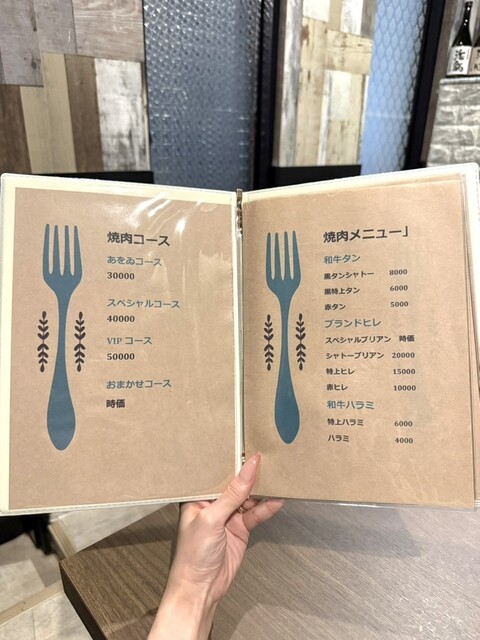 焼肉コース
あをゐコース
30000
スペシャルコース
40000
VIP コース
50000
おまかせコース
時価
焼肉メニュー」
和牛タン
黒タンシャトー 8000
黒特上タン 6000
赤タン 5000
ブランドヒレ
スペシャルブリアン 時価
シャトーブリアン 20000
特上ヒレ 15000
赤ヒレ 10000
和牛ハラミ
特上ハラミ 6000
ハラミ 4000